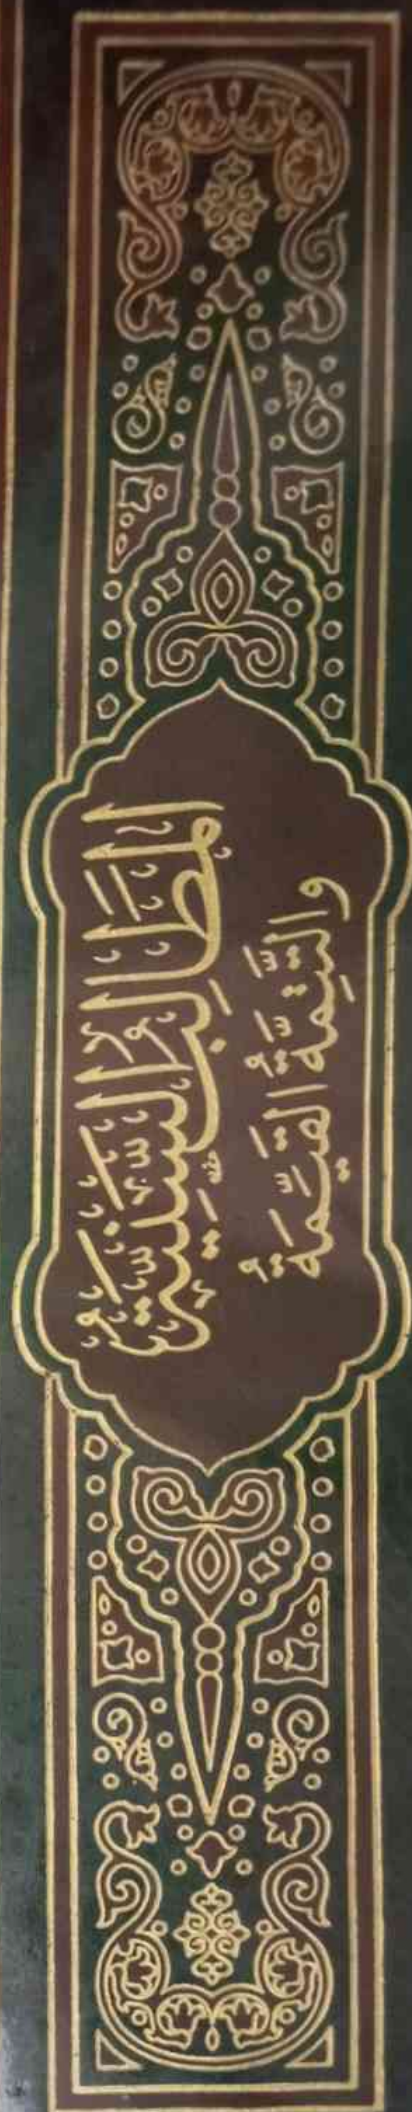 المَطَالِبُ السَّنِيَّةُ
وَالتَّتِمَّةُ القَيِّمَةُ